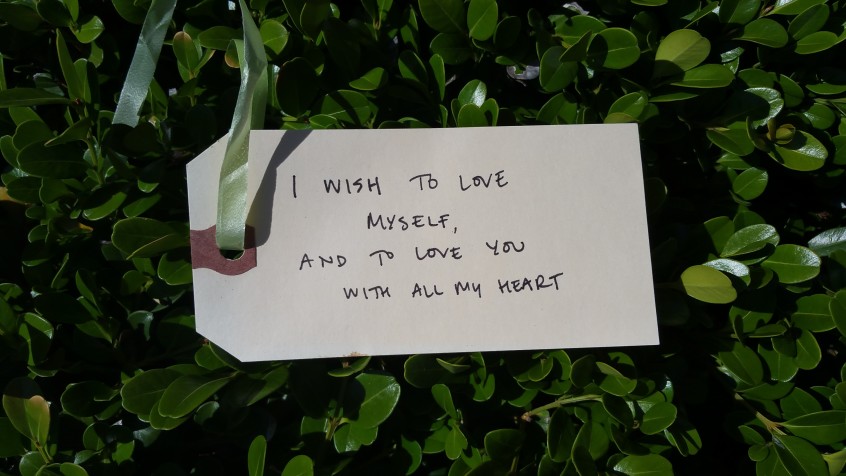 I WISH TO LOVE
MYSELF,
AND TO LOVE YOU
WITH ALL MY HEART